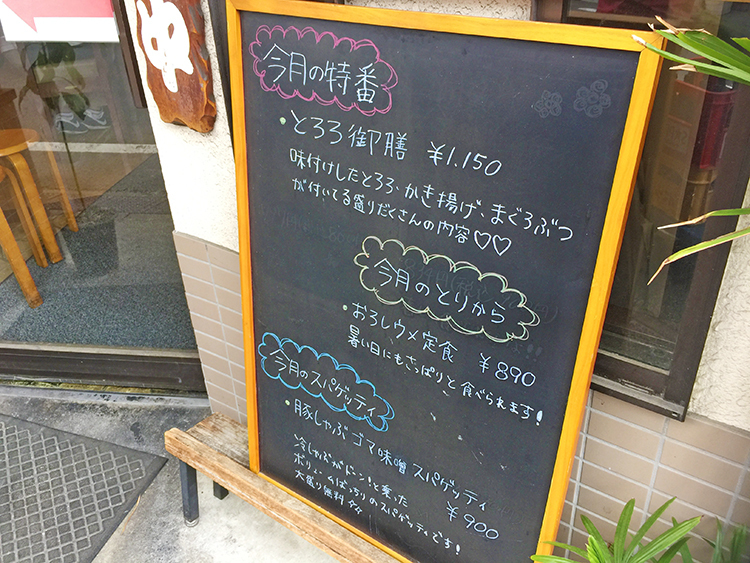 今月の特番
・とろろ御膳 ¥1,150
味付けしたとろろ、かき揚げ、まぐろぶつ
が付いてる盛りだくさんの内容♡♡
今月のとりから
・おろしウメ定食 ¥890
暑い日にもさっぱりと食べられます!
今月のスパゲッティ
・豚しゃぶゴマ味噌スパゲッティ
¥900
冷しゃぶがドーン!と乗った
ボリュームばっちりのスパゲッティです!
大盛り無料